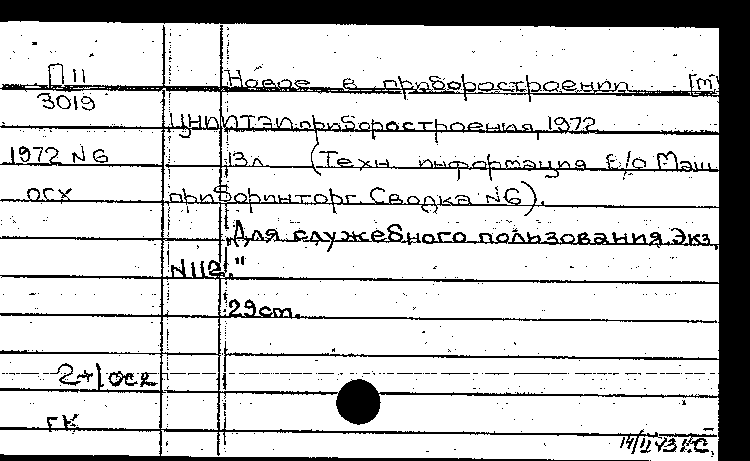 П 11
3019
Новое в приборостроении [М]
ЦНИИТЭИприборостроения, 1972
1972 N 6
13л. (Техн. информация В/о Маш
осх
приборинторг. Сводка N6).
„Для служебного пользования. Экз.
N112."
29 ст.
2+1 осх
ГК